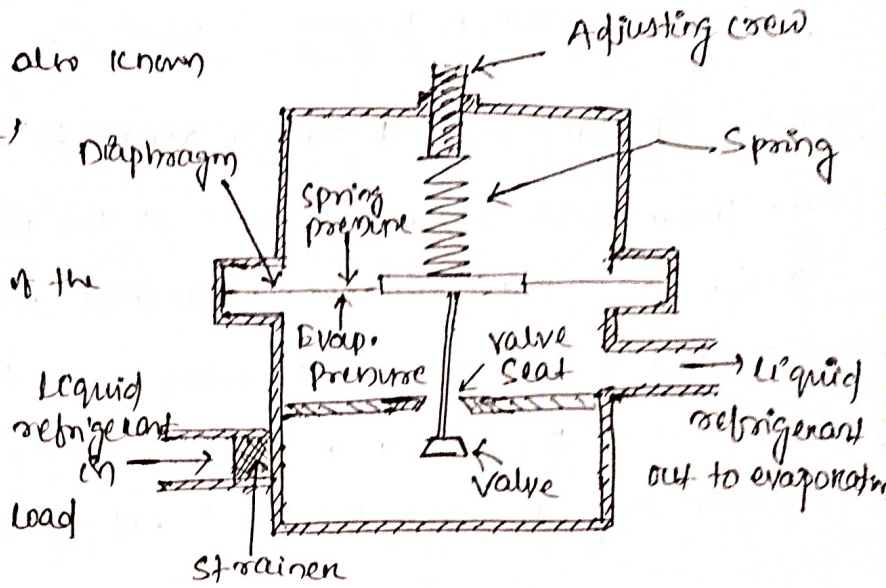 Adjusting crew
also known
Spring
Diaphragm
Spring
pressure
of the
Evap.
Pressure
valve
Seat
Liquid
refrigerant
in
Liquid
refrigerant
out to evaporator
Valve
Load
Strainer